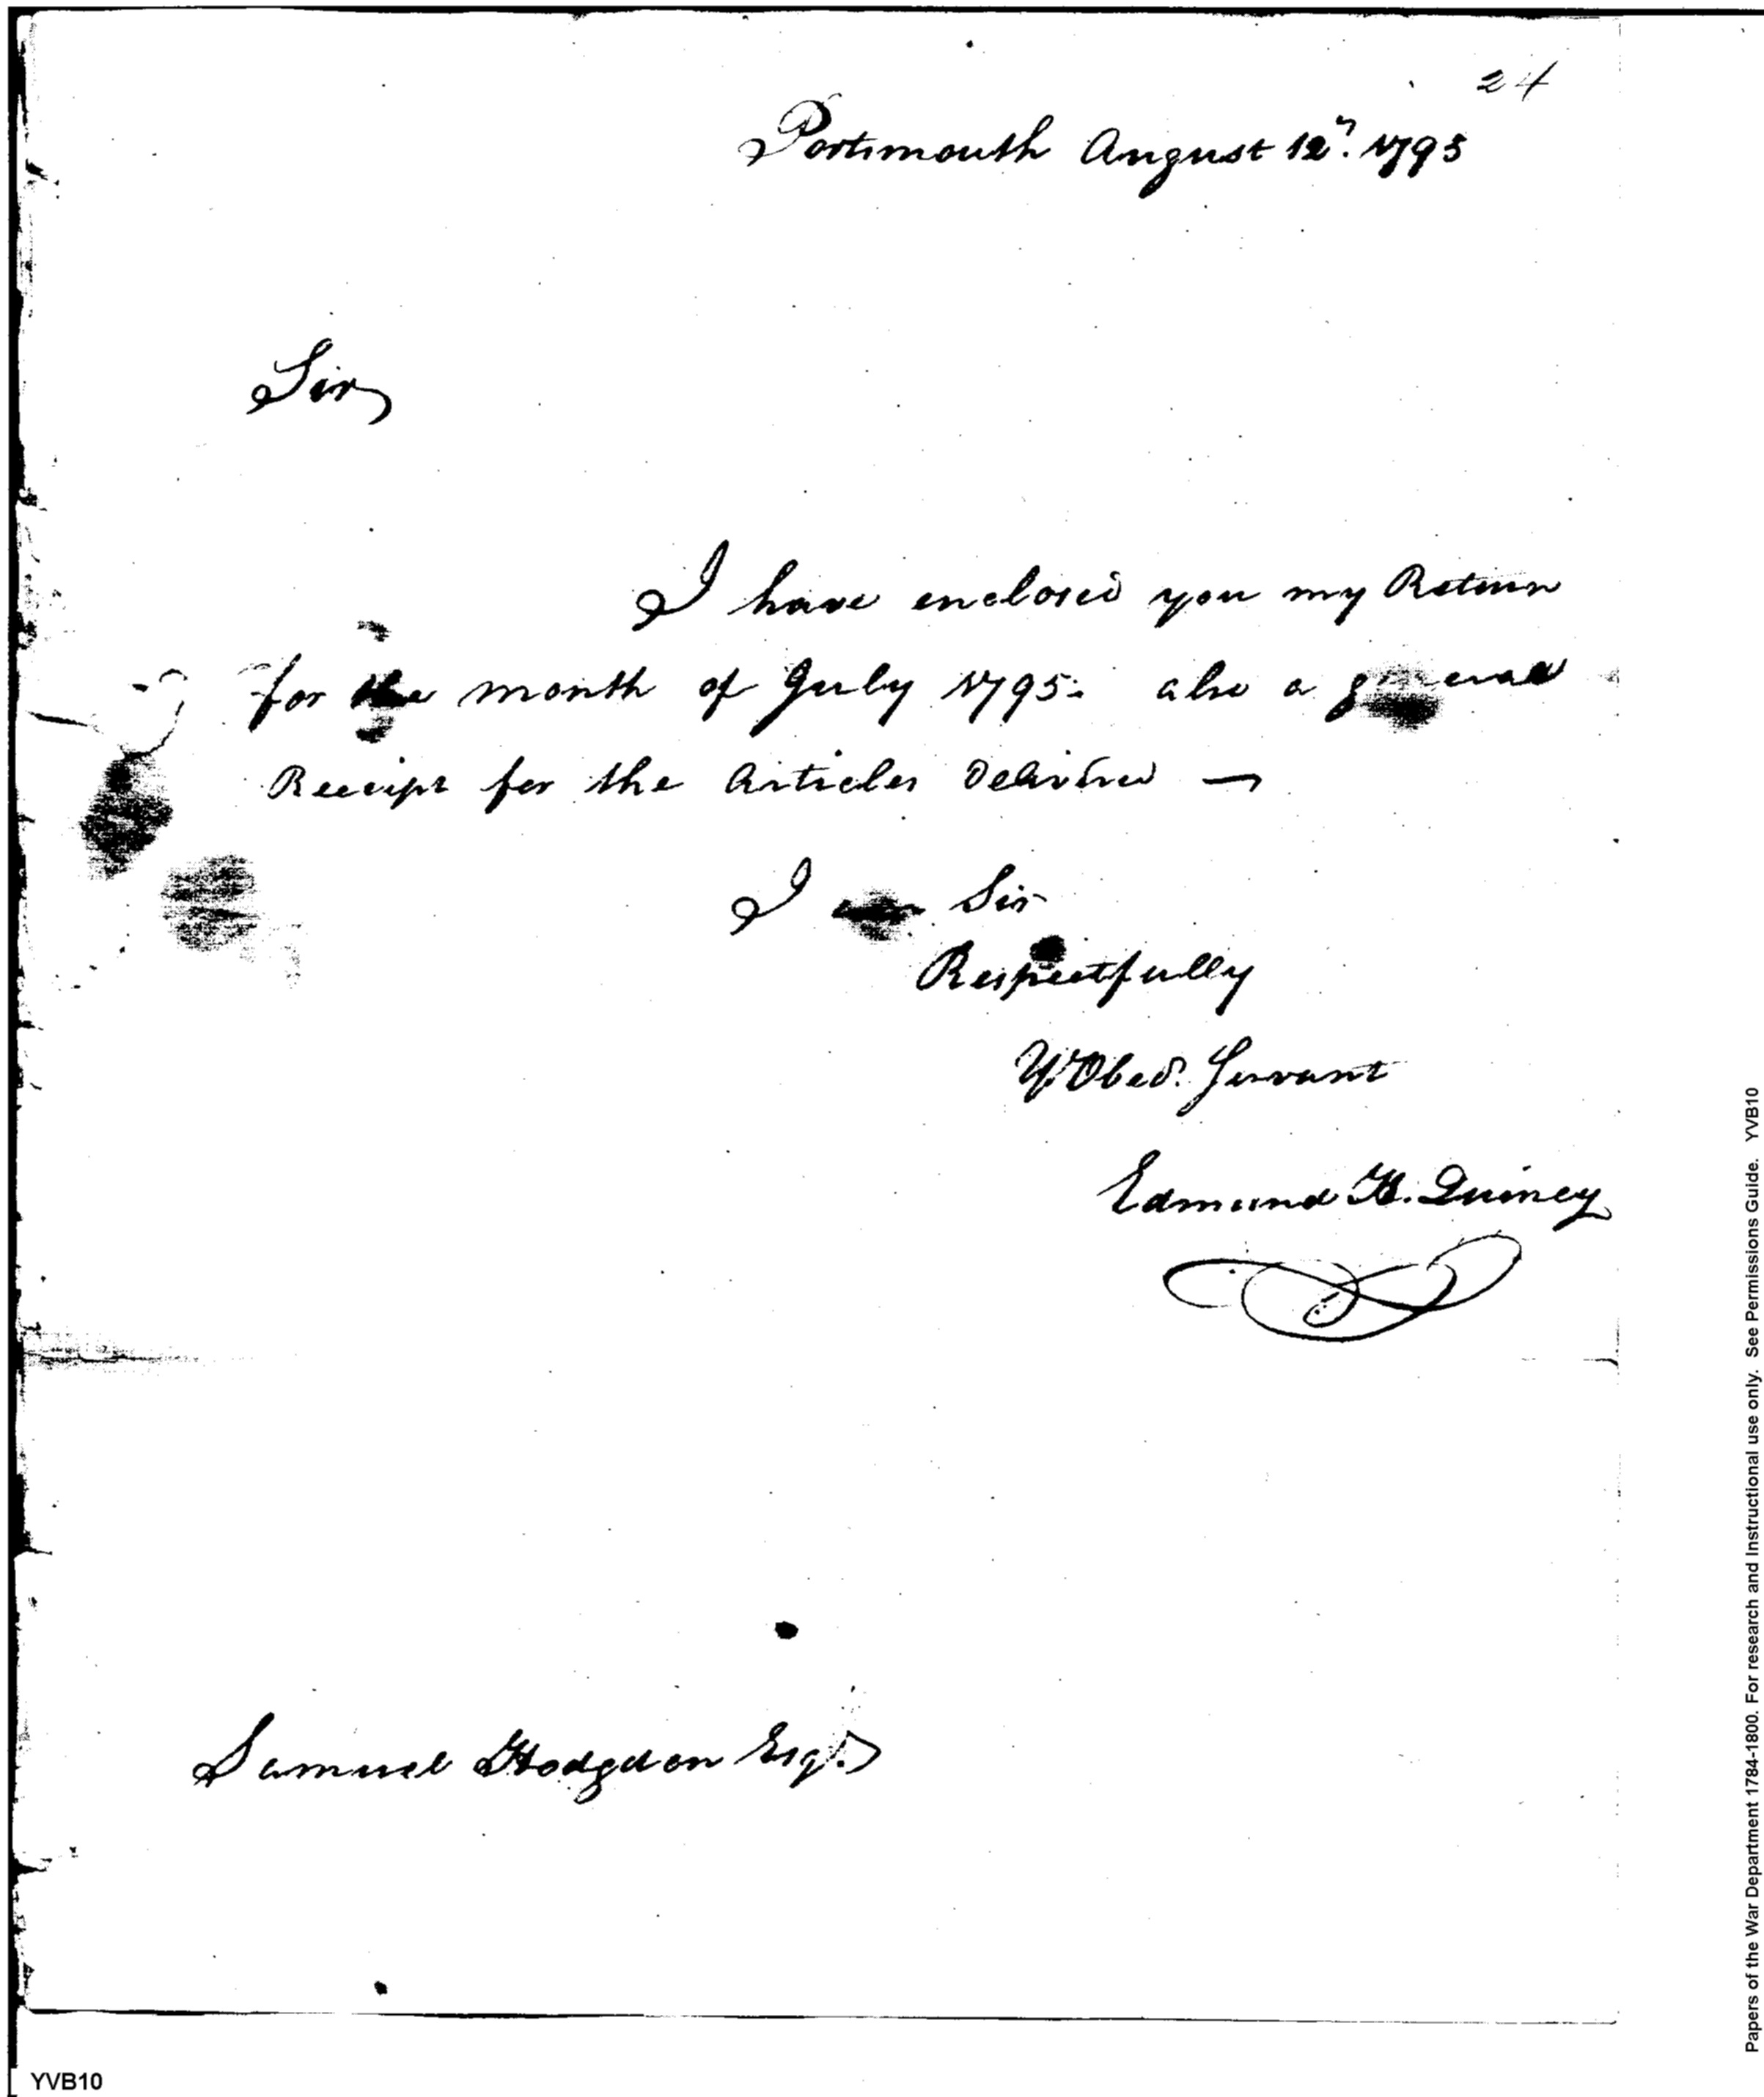 24
Portsmouth August 12th. 1795
Sir,
I have enclosed you my Return
for the month of July 1795: also a general
Receipt for the Articles Delivered —
I am Sir
Respectfully
Yr. Obed. Servant
Edmund H. Quincy
Samuel Hodgdon Esqr.
YVB10
Papers of the War Department 1784-1800. For research and Instructional use only. See Permissions Guide. YVB10